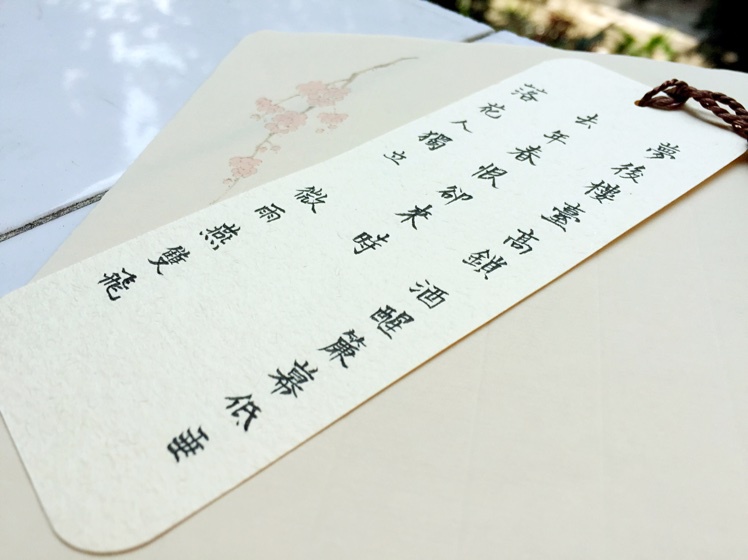 夢後樓臺高鎖 酒醒簾幕低垂
去年春恨卻來時
落花人獨立 微雨燕雙飛